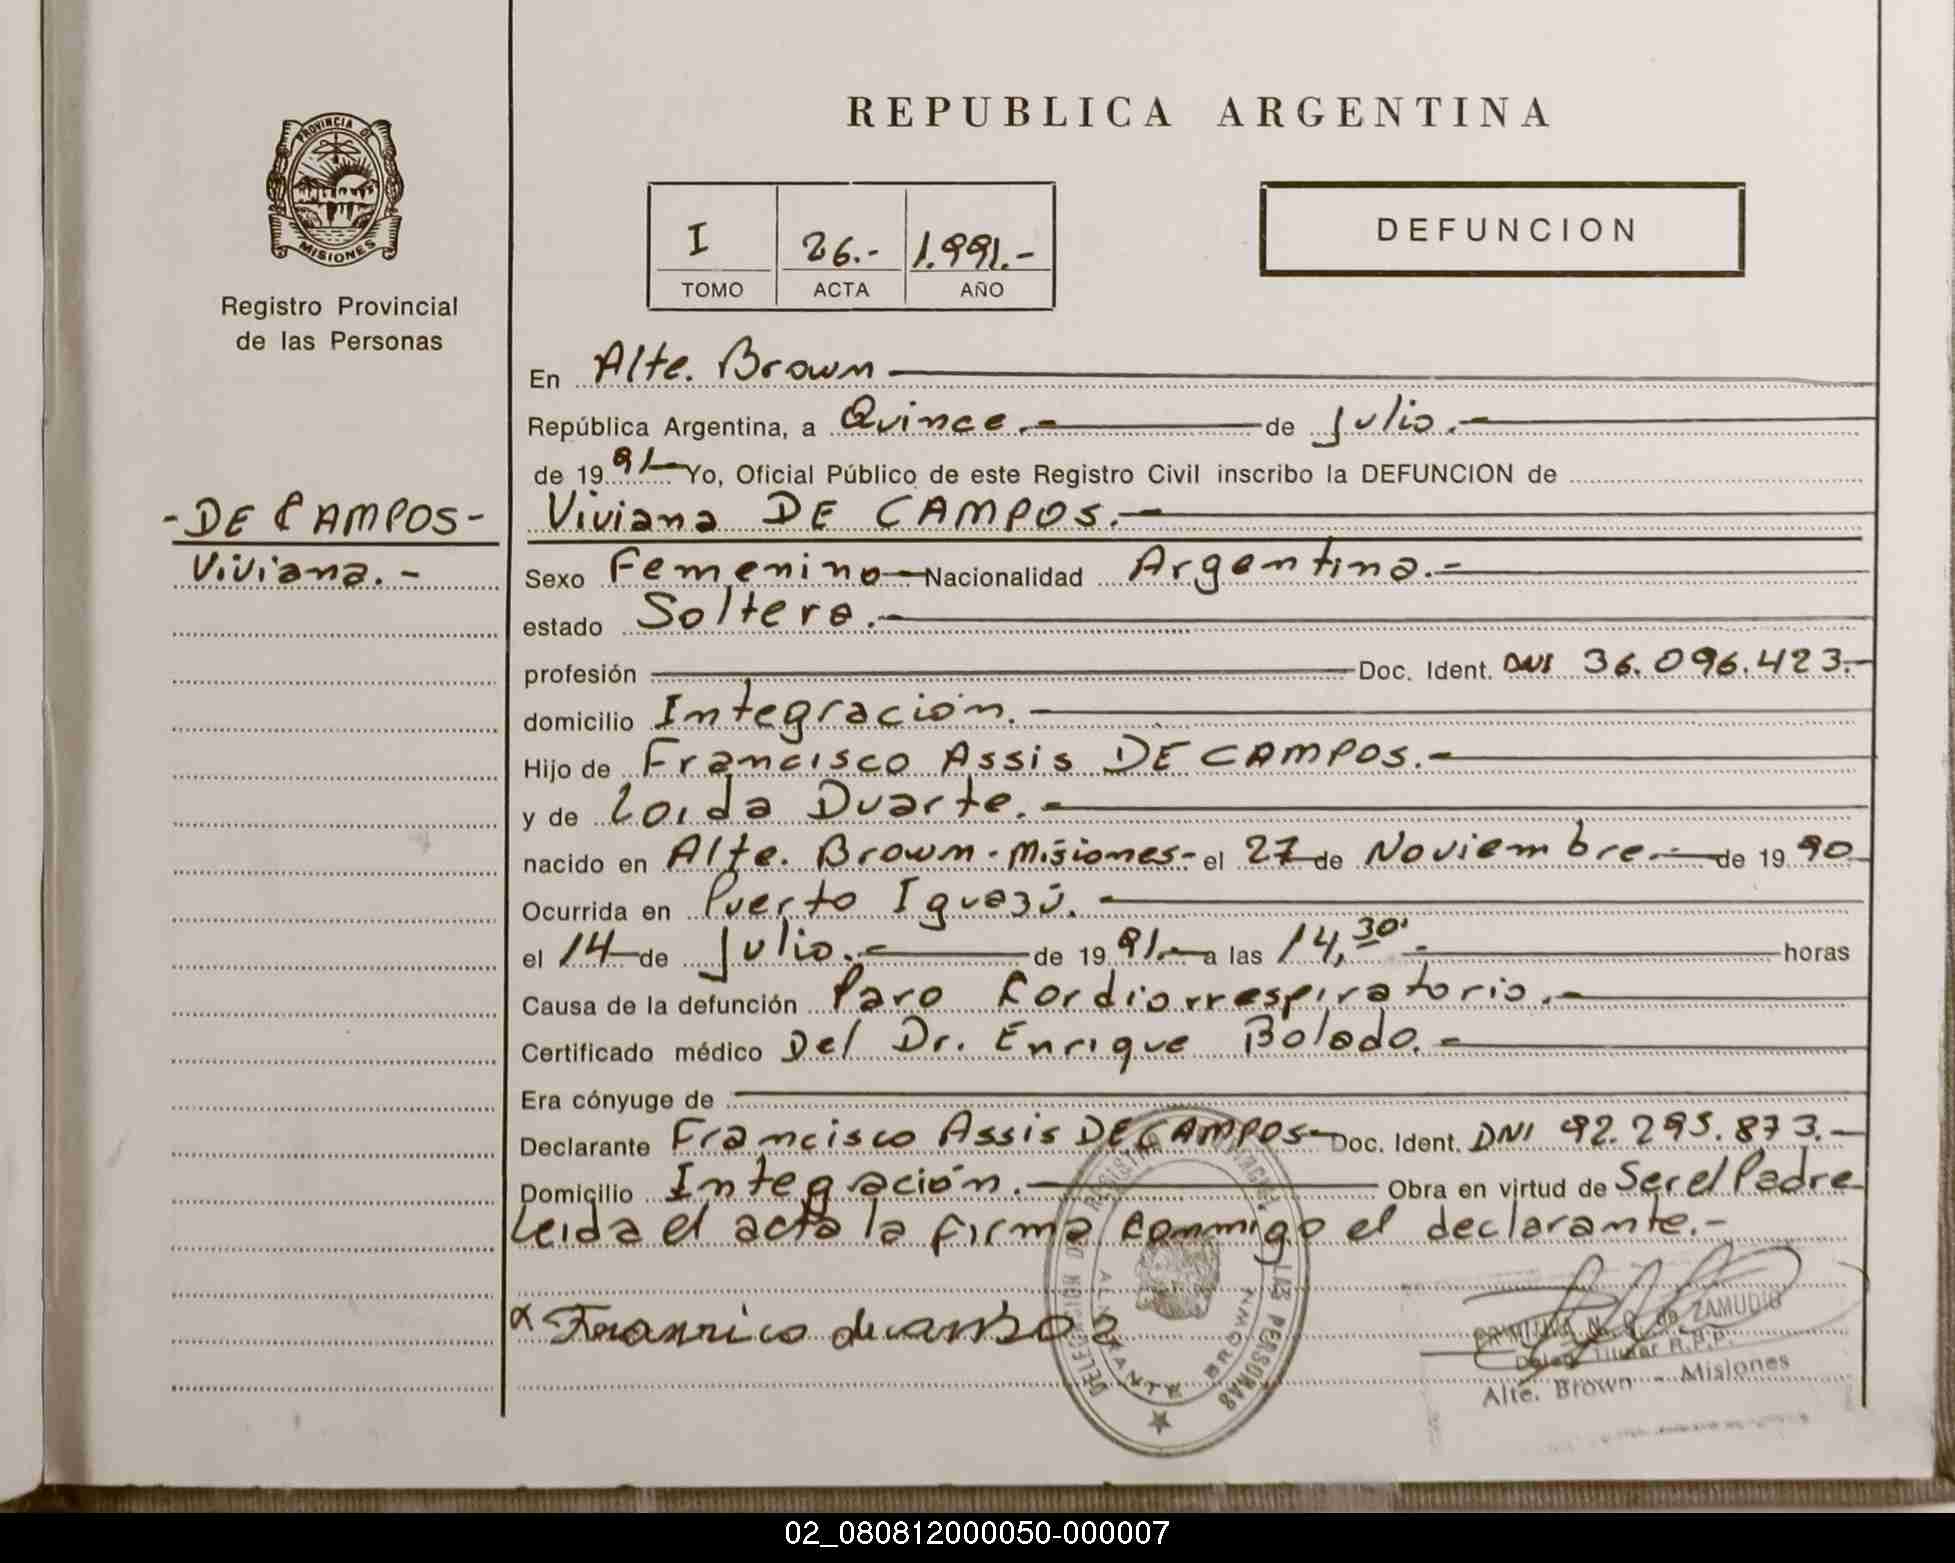 REPUBLICA ARGENTINA
PROVINCIA DE
MISIONES
Registro Provincial
de las Personas
I 26.- 1.991.-
TOMO ACTA AÑO
DEFUNCION
-DE CAMPOS-
Viviana.-
En Alte. Brown
República Argentina, a Quince.- de Julio.-
de 1991- Yo, Oficial Público de este Registro Civil inscribo la DEFUNCION de
Viviana DE CAMPOS.-
Sexo Femenino- Nacionalidad Argentina.-
estado Soltera.-
profesión Doc. Ident. DNI 36.096.423.-
domicilio Integración.-
Hijo de Francisco Assis DE CAMPOS.-
y de Loida Duarte.-
nacido en Alte. Brown-Misiones- el 27 de Noviembre.- de 1990
Ocurrida en Puerto Iguazú.-
el 14 de Julio.- de 1991.- a las 14,30'- horas
Causa de la defunción Paro Cordiorrespiratorio.-
Certificado médico Del Dr. Enrique Bolado.-
Era cónyuge de
Declarante Francisco Assis DE CAMPOS- Doc. Ident. DNI 92.295.873.-
Domicilio Integación.- Obra en virtud de Ser el Padre
Leida el acta la firma conmigo el declarante.-
ALMIRANTE BROWN
LAS PERSONAS
de ZAMUDIO
Titular R.P.P.
Alte. Brown - Misiones
02_080812000050-000007